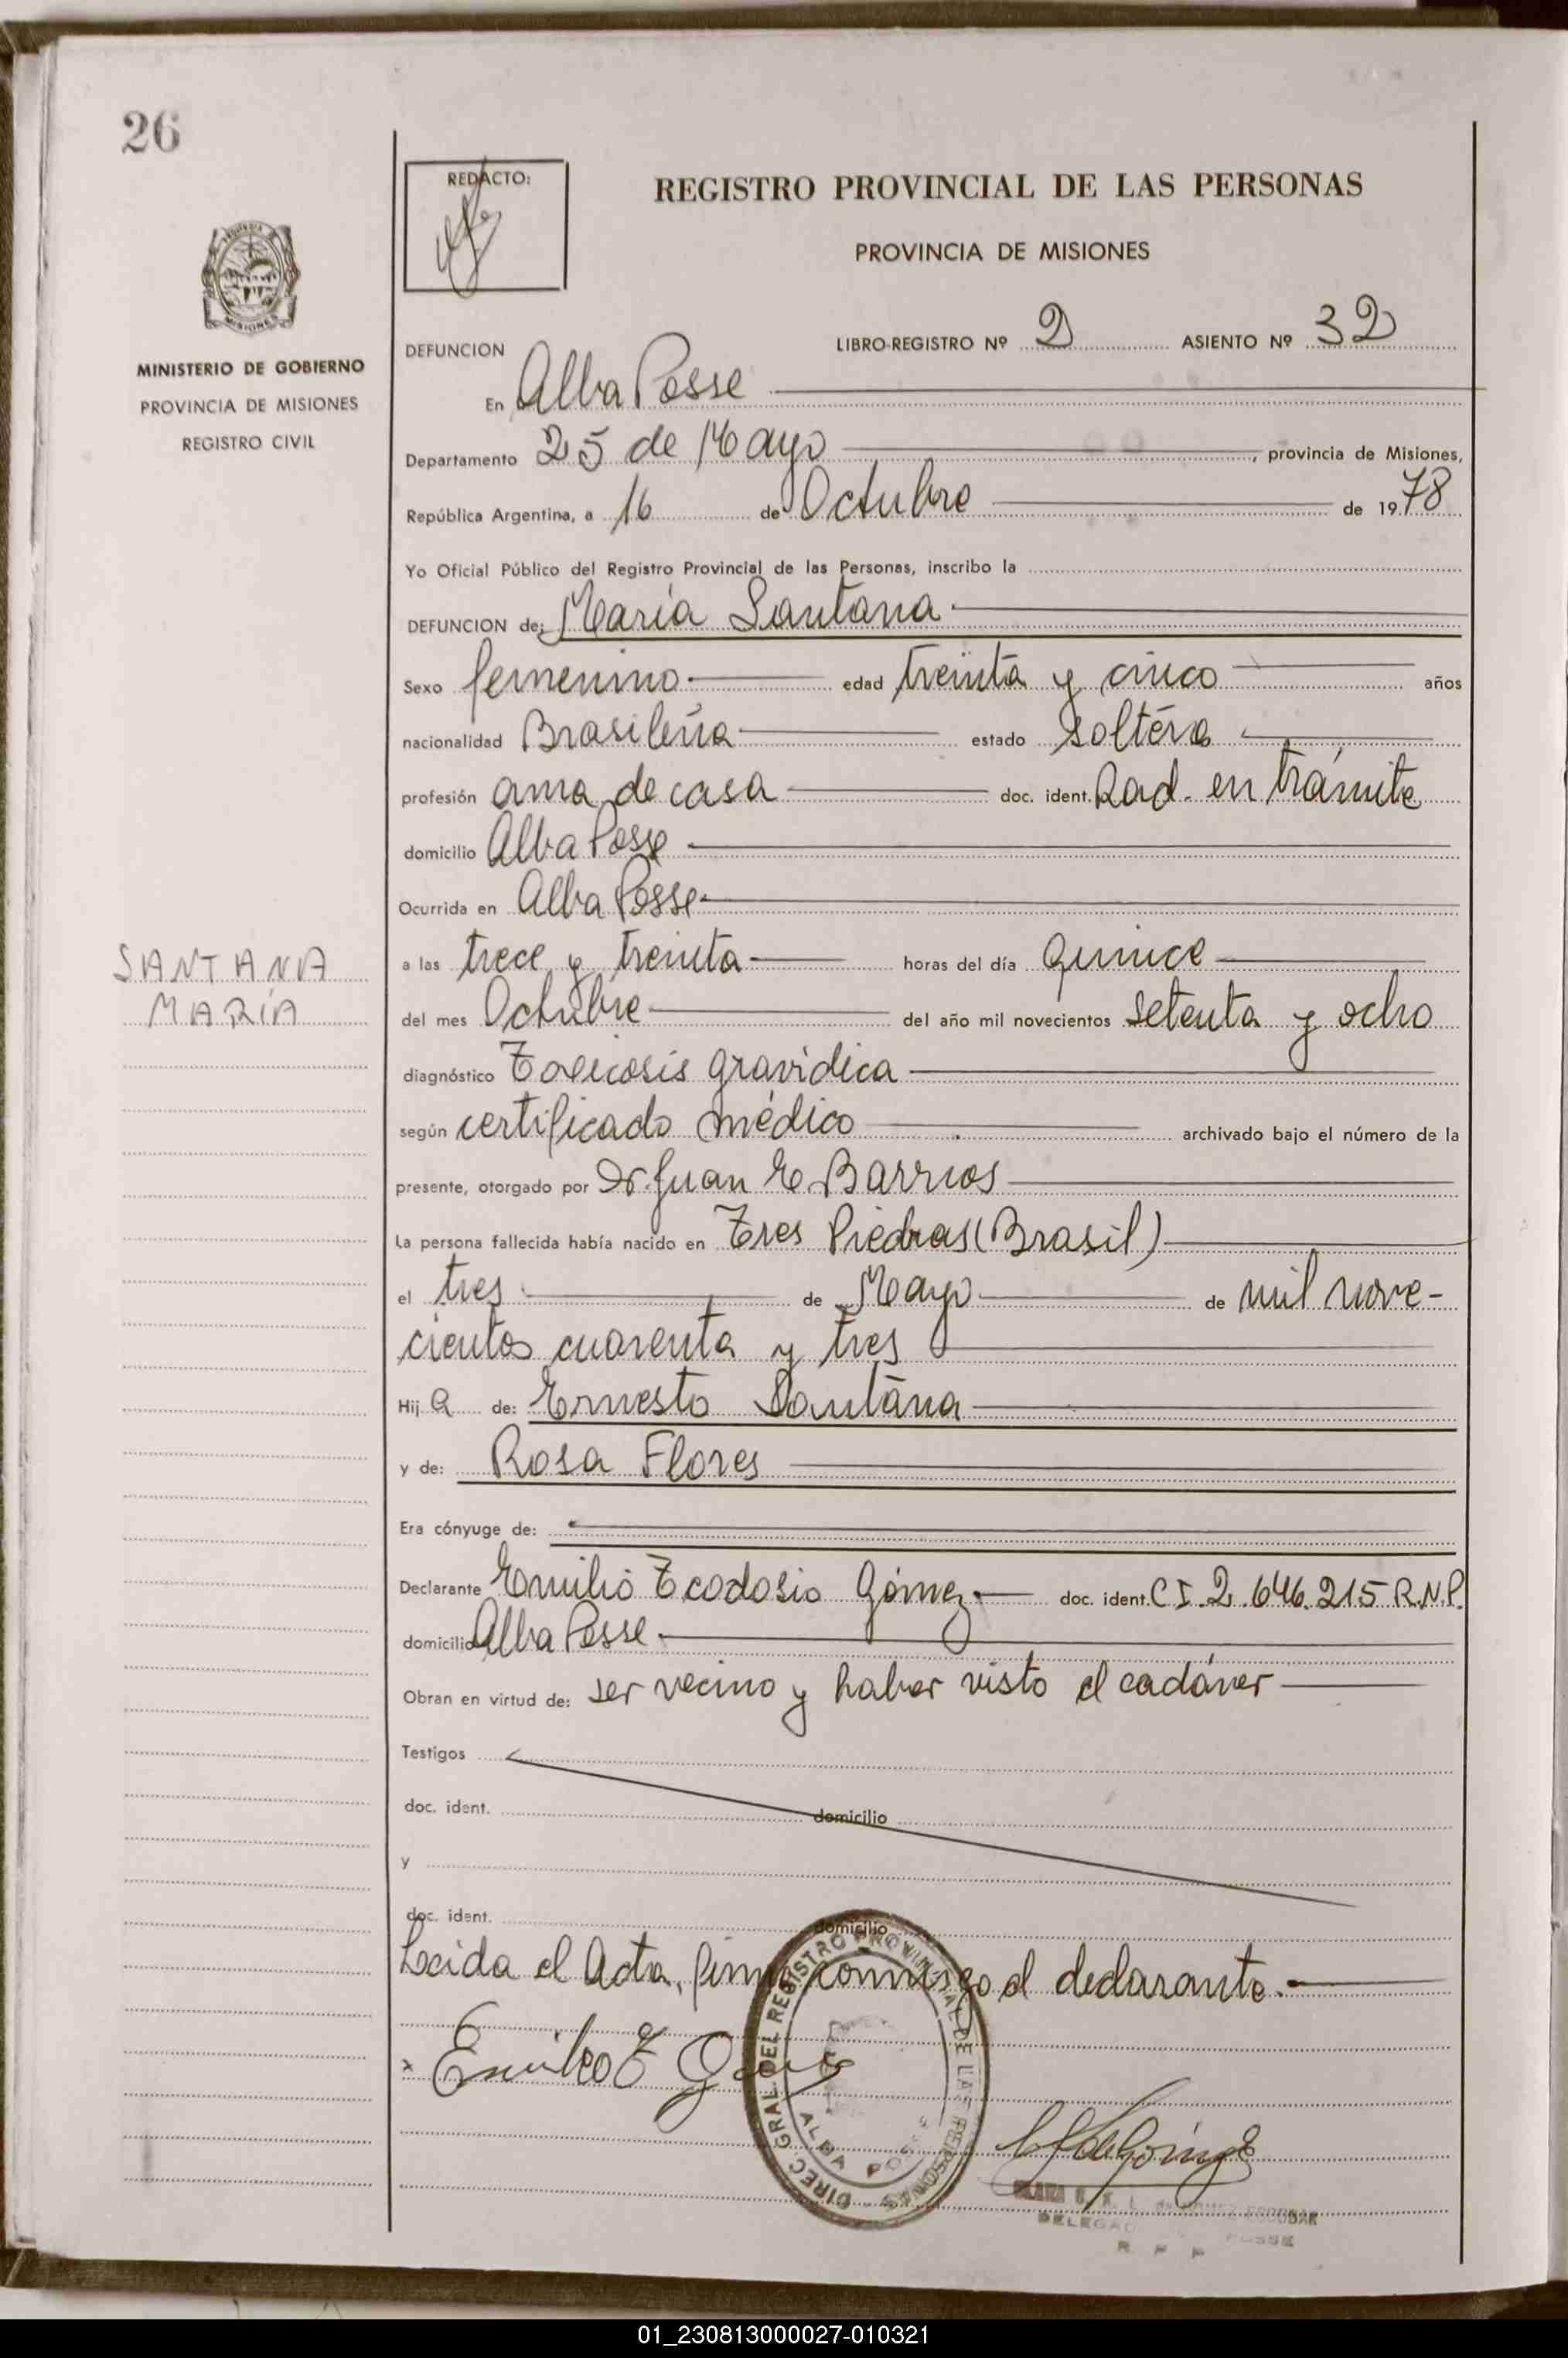 26
REDACTO:
REGISTRO PROVINCIAL DE LAS PERSONAS
PROVINCIA DE MISIONES
MISIONES
MINISTERIO DE GOBIERNO
PROVINCIA DE MISIONES
REGISTRO CIVIL
DEFUNCION
LIBRO-REGISTRO Nº 2 ASIENTO Nº 32
En Alba Posse
Departamento 25 de Mayo, provincia de Misiones,
República Argentina, a 16 de Octubre de 1978
Yo Oficial Público del Registro Provincial de las Personas, inscribo la
DEFUNCION de: María Santana
Sexo femenino edad treinta y cinco años
nacionalidad Brasileña estado soltera
profesión ama de casa doc. ident. Rad. en trámite
domicilio Alba Posse
Ocurrida en Alba Posse
SANTANA
MARÍA
a las trece y treinta horas del día quince
del mes Octubre del año mil novecientos setenta y ocho
diagnóstico Toxicosis gravídica
según certificado médico archivado bajo el número de la
presente, otorgado por Dr. Juan E. Barrios
La persona fallecida había nacido en Tres Piedras (Brasil)
el tres de Mayo de mil nove-
cientos cuarenta y tres
Hija de: Ernesto Santana
y de: Rosa Flores
Era cónyuge de:
Declarante Emilio Teodosio Gómez doc. ident. C.I. 2.646.215 R.N.P.
domicilio Alba Posse
Obran en virtud de: ser vecino y haber visto el cadáver
Testigos
doc. ident. domicilio
y
doc. ident. domicilio
Leida el Acta, firma conmigo el declarante.
DIREC. GRAL. DEL REGISTRO PROVINCIAL DE LAS PERSONAS
ALBA POSSE
Emilio T
ESCOBAR
POSSE
R P P
01_230813000027-010321